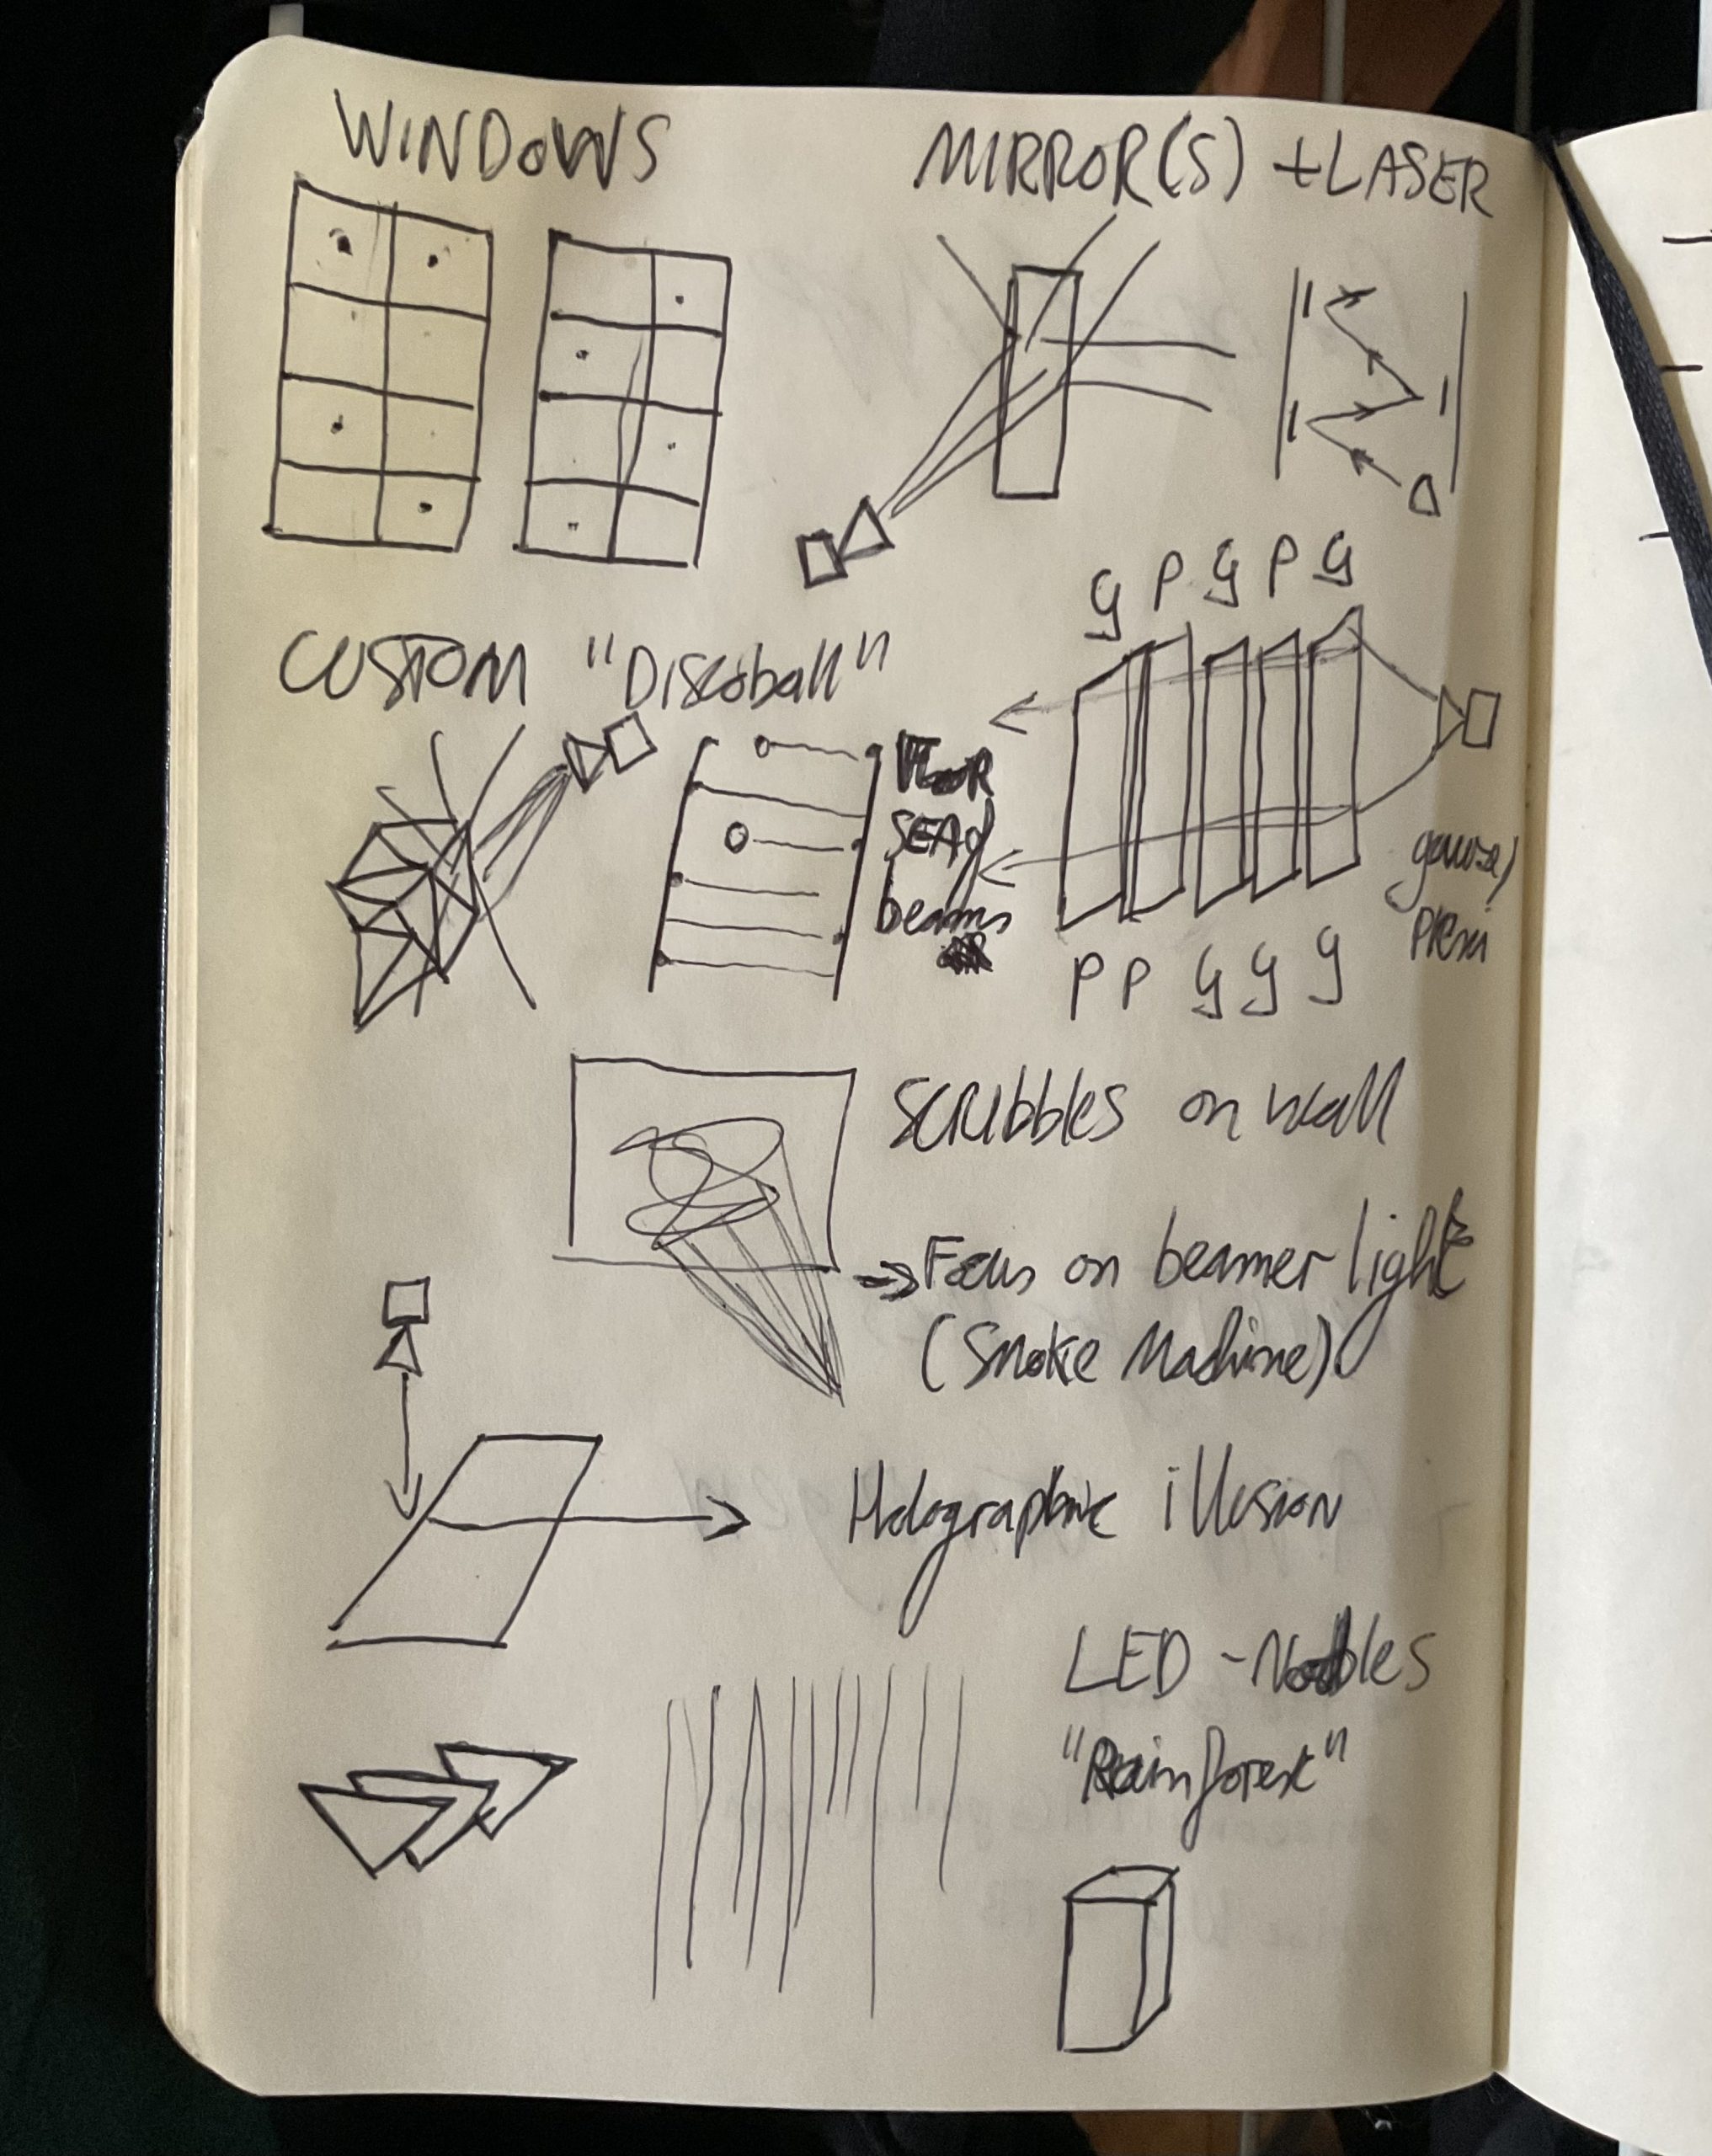 WINDOWS
MIRROR(S) + LASER
g P g P g
CUSTOM "Discoball"
beams
gauze/
plexi
P P g g g
SCRIbbLES on wall
→ Focus on beamer light
(Smoke Machine)
Holographic illusion
LED -
"Rainforest"